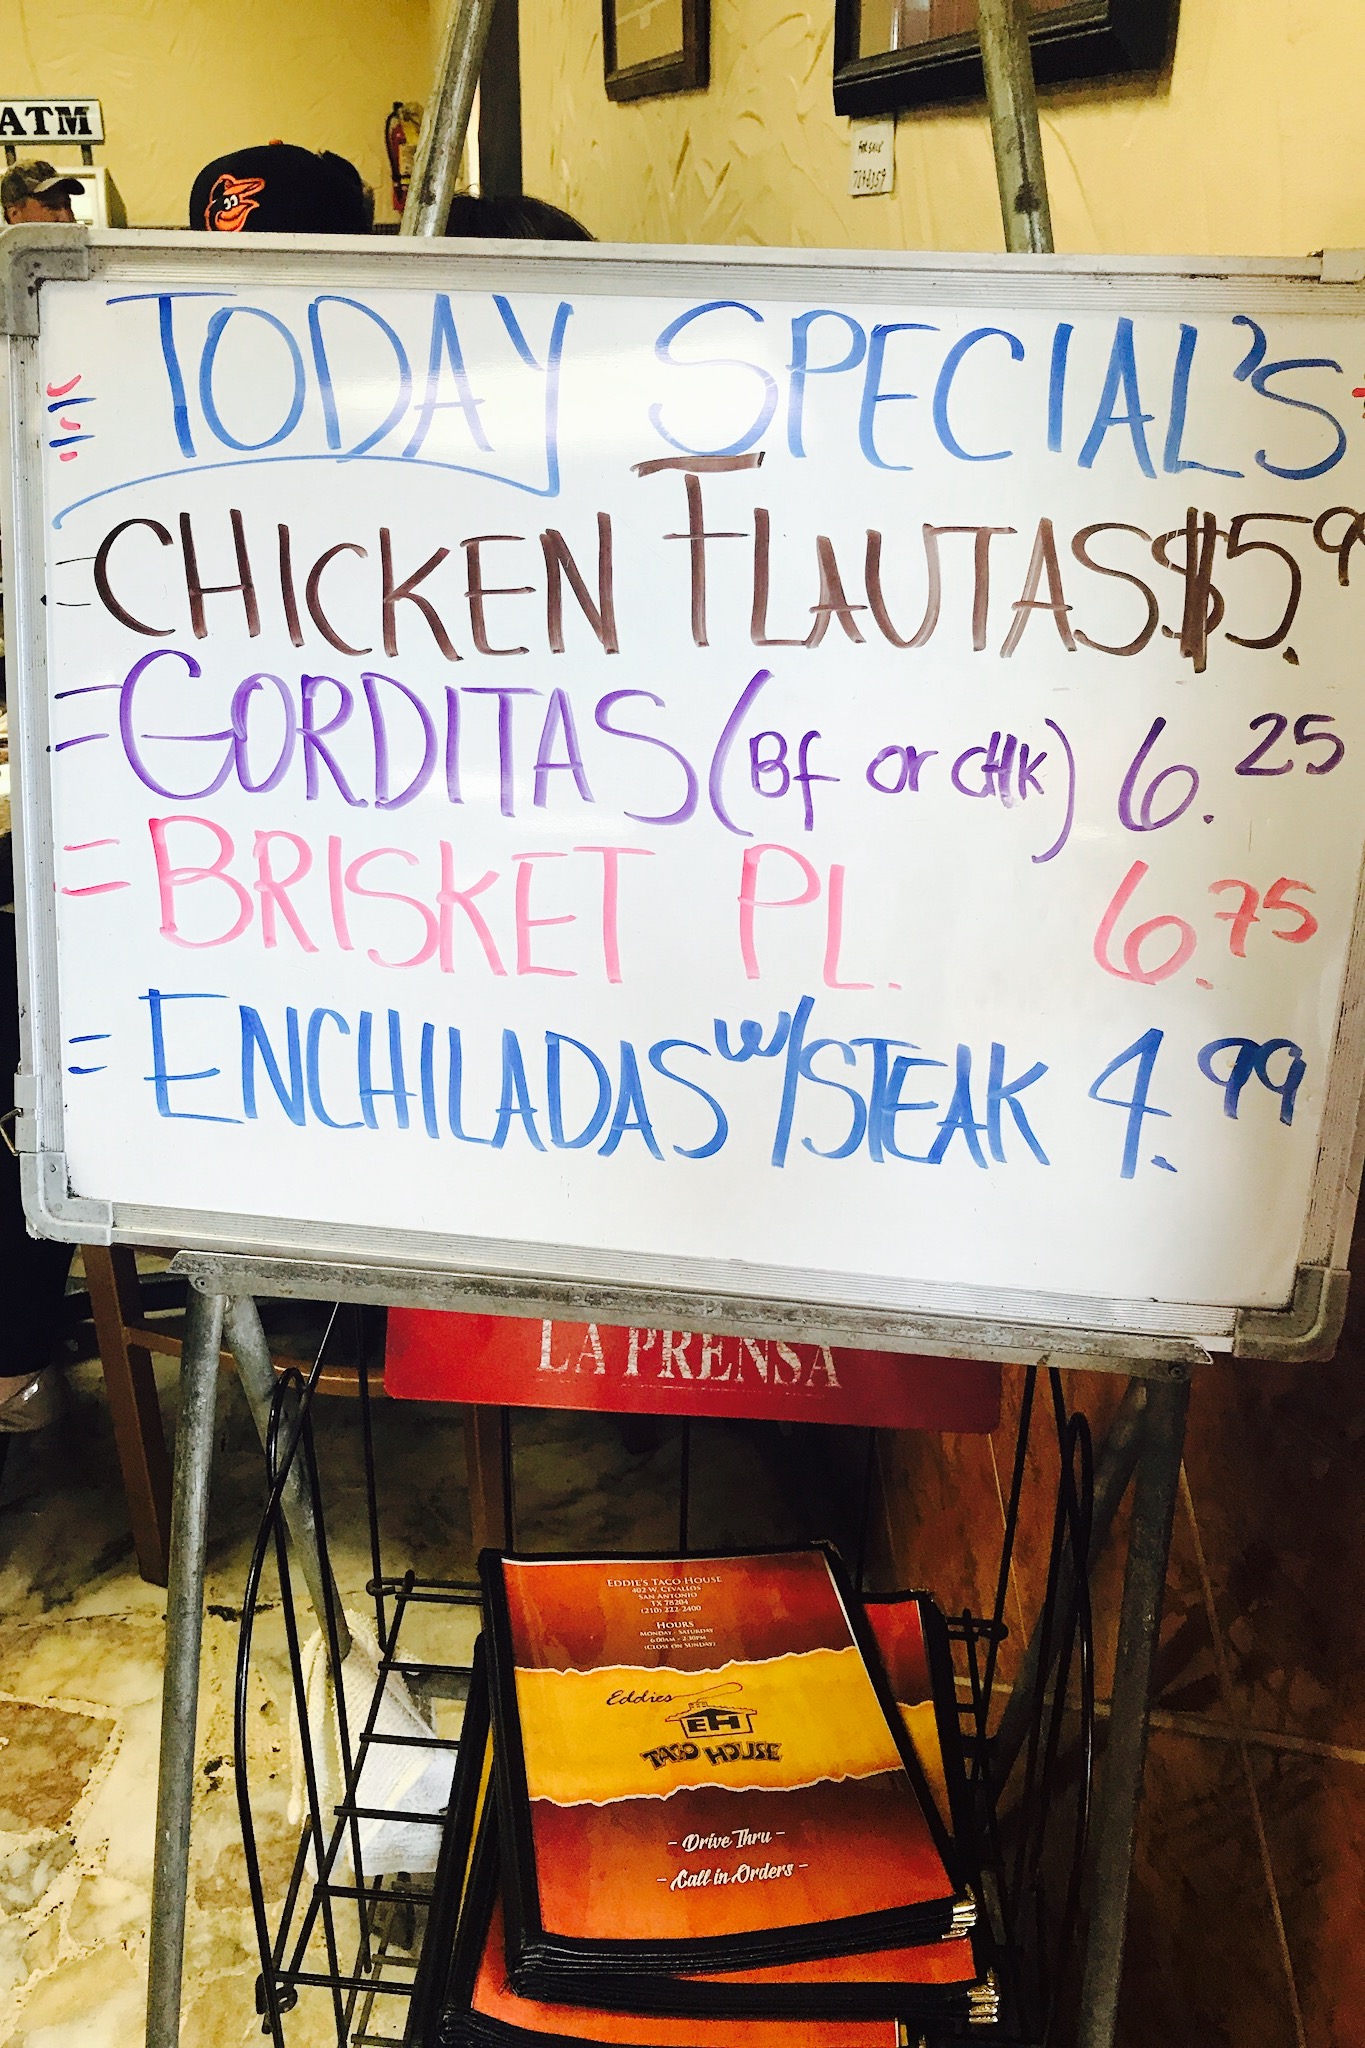 ATM
FOR SALE
TODAY SPECIAL'S
CHICKEN FLAUTAS $5.9
GORDITAS (BF or CHK) 6.25
BRISKET PL. 6.75
ENCHILADAS w/STEAK 4.99
LA PRENSA
EDDIE'S TACO HOUSE
402 W. CEVALLOS
SAN ANTONIO
TX 78204
(210) 222-2400
HOURS
MONDAY - SATURDAY
6:00AM - 2:30PM
(CLOSE ON SUNDAY)
Eddies
EH
TACO HOUSE
- Drive Thru -
- Call in Orders -